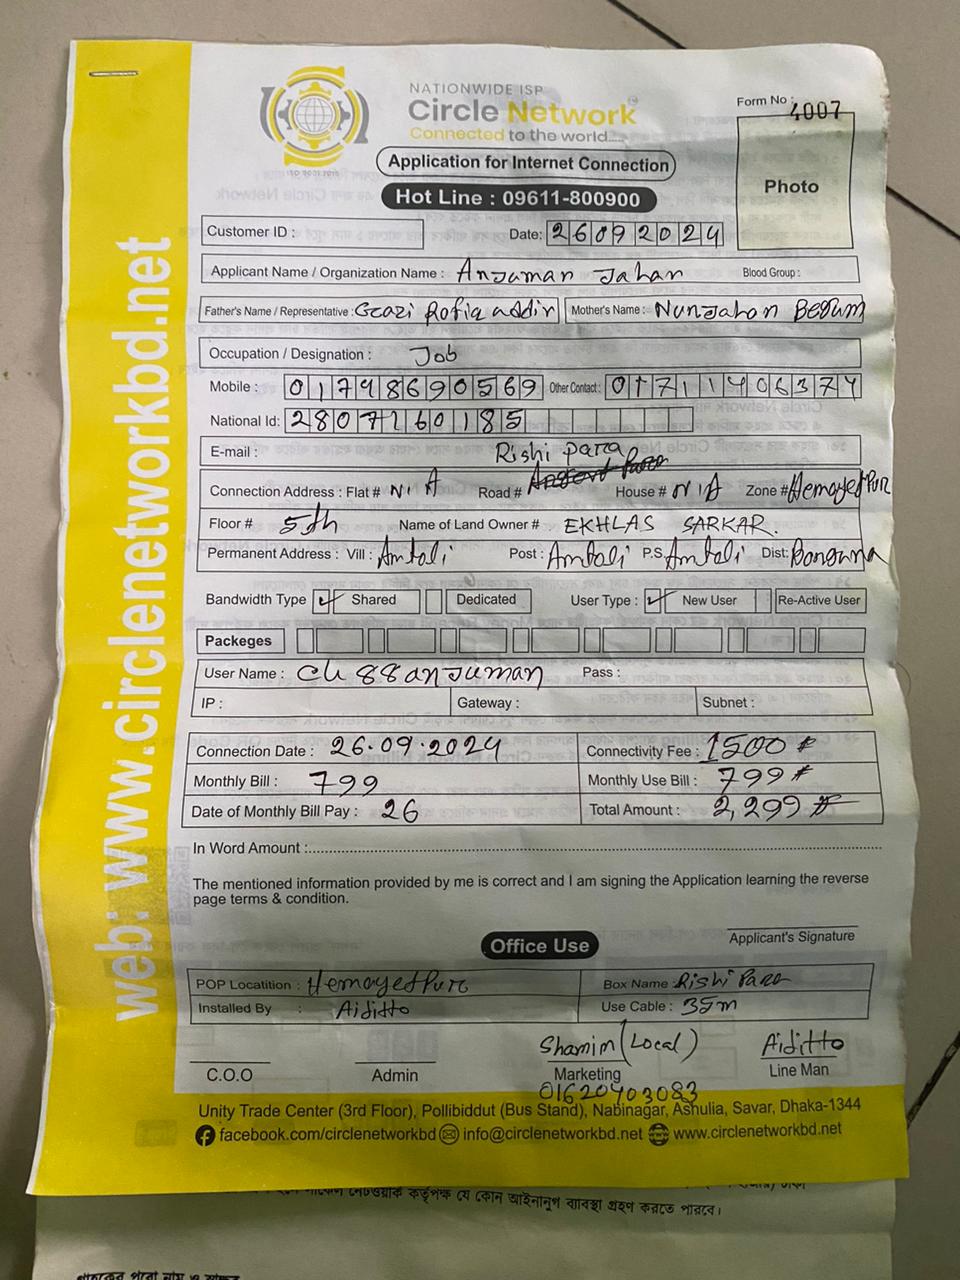 NATIONWIDE ISP
Circle Network
Connected to the world....
ISO 9001:2015
Form No : 4007
Application for Internet Connection
Photo
Hot Line : 09611-800900
Customer ID : Date: 26092024
Applicant Name / Organization Name : Anjuman Jahan Blood Group :
Father's Name / Representative : Gazi Rofiq uddin Mother's Name : Nurjahan Begum
Occupation / Designation : Job
Mobile : 01798690569 Other Contact : 01711406374
National Id: 2807160185
E-mail :
Rishi para
Connection Address : Flat # N/A Road # House # N/A Zone # Hemayetpur
Floor # 5th Name of Land Owner # EKHLAS SARKAR.
Permanent Address : Vill : Amtali Post : Amtali P.S Amtali Dist: Borguna
Bandwidth Type ✓ Shared Dedicated User Type : ✓ New User Re-Active User
Packeges
User Name : CU 88anjuman Pass :
IP : Gateway : Subnet :
Connection Date : 26.09.2024 Connectivity Fee : 1500
Monthly Bill : 799 Monthly Use Bill : 799
Date of Monthly Bill Pay : 26 Total Amount : 2,299
In Word Amount :
The mentioned information provided by me is correct and I am signing the Application learning the reverse
page terms & condition.
Applicant's Signature
Office Use
POP Locatition : Hemayetpur Box Name : Rishi Para
Installed By : Aiditto Use Cable : 35m
Shamim (Local) Aiditto
C.O.O Admin Marketing Line Man
01620403083
Unity Trade Center (3rd Floor), Pollibiddut (Bus Stand), Nabinagar, Ashulia, Savar, Dhaka-1344
facebook.com/circlenetworkbd info@circlenetworkbd.net www.circlenetworkbd.net
web: www.circlenetworkbd.net
নেটওয়ার্ক কর্তৃপক্ষ যে কোন আইনানুগ ব্যবস্থা গ্রহণ করতে পারবে।